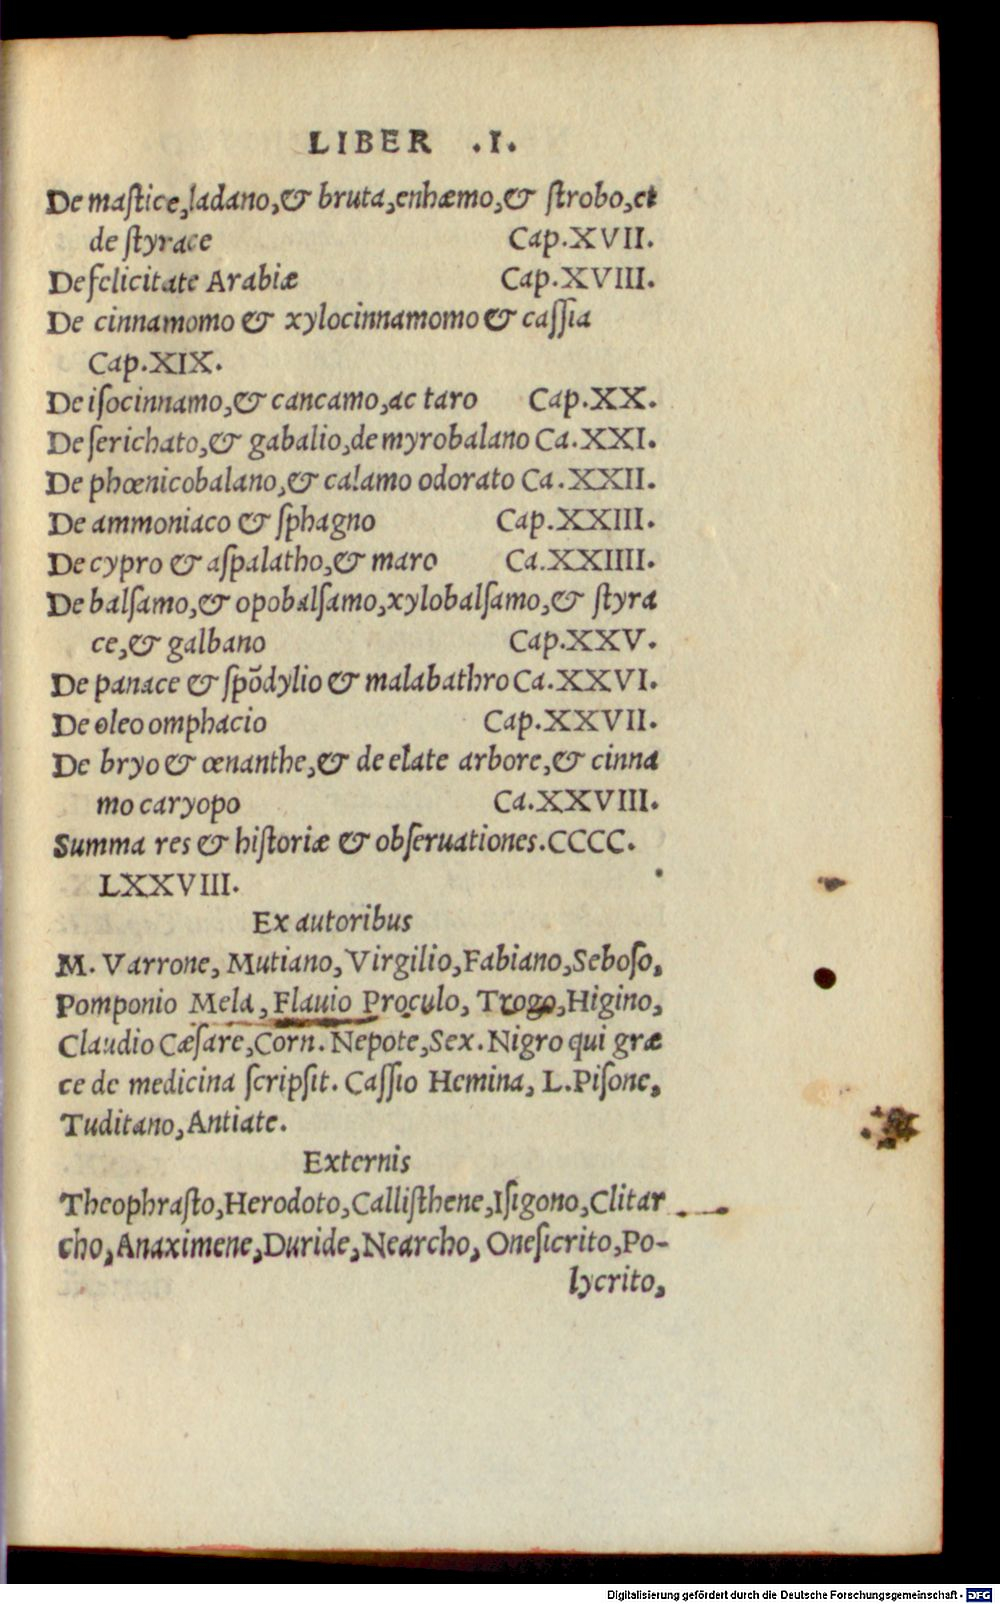 LIBER .I.
De maſtice,ladano,& bruta,enhæmo,& ſtrobo,et
de ſtyrace Cap.XVII.
De felicitate Arabiæ Cap.XVIII.
De cinnamomo & xylocinnamomo & caſſia
Cap.XIX.
De iſocinnamo,& cancamo,ac taro Cap.XX.
De ſerichato,& gabalio,de myrobalano Ca.XXI.
De phœnicobalano,& calamo odorato Ca.XXII.
De ammoniaco & ſphagno Cap.XXIII.
De cypro & aſpalatho,& maro Ca.XXIIII.
De balſamo,& opobalſamo,xylobalſamo,& ſtyra
ce,& galbano Cap.XXV.
De panace & ſpõdylio & malabathro Ca.XXVI.
De oleo omphacio Cap.XXVII.
De bryo & œnanthe,& de elate arbore,& cinna
mo caryopo Ca.XXVIII.
Summa res & hiſtoriæ & obſeruationes.CCCC.
LXXVIII.
Ex autoribus
M. Varrone, Mutiano, Virgilio,Fabiano,Seboſo,
Pomponio Mela, Flauio Proculo, Trogo,Higino,
Claudio Cæſare,Corn. Nepote,Sex. Nigro qui græ
ce de medicina ſcripſit. Caſſio Hemina, L.Piſone,
Tuditano,Antiate.
Externis
Theophraſto,Herodoto,Calliſthene,Iſigono,Clitar
cho,Anaximene,Duride,Nearcho, Oneſicrito,Po-
lycrito,
Digitalisierung gefördert durch die Deutsche Forschungsgemeinschaft - DFG